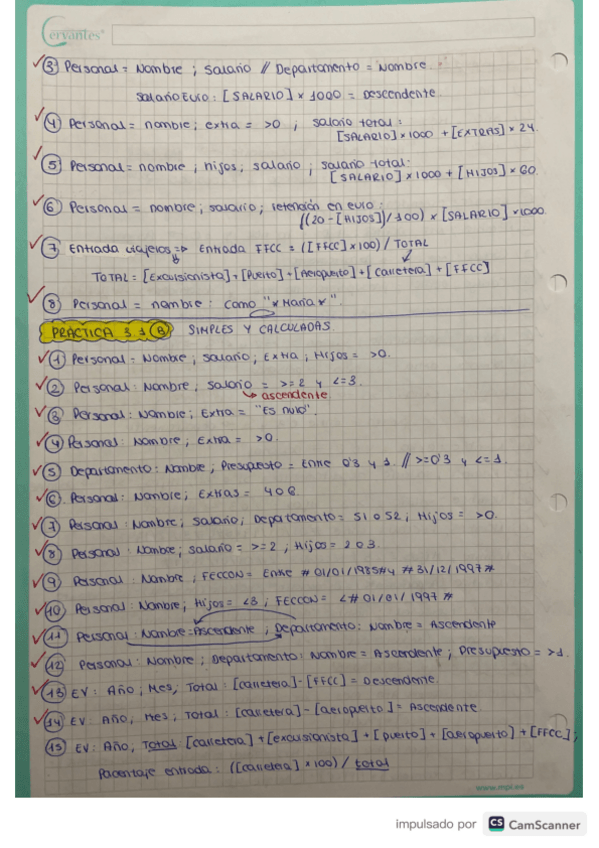 Cervantes
③ Personal = Nombre ; Salario // Departamento = Nombre.
Salario Euro : [SALARIO] x 1000 = Descendente
④ Personal = nombre ; extra = >0 ; salario total :
[SALARIO] x 1000 + [EXTRAS] x 24
⑤ Personal = nombre ; hijos ; salario ; salario total:
[SALARIO] x 1000 + [HIJOS] x 60
⑥ Personal = nombre ; salario ; retención en euro :
((20 - [HIJOS]) / 100) x [SALARIO] x 1000
⑦ Entrada viajeros => Entrada FFCC = ([FFCC] x 100) / TOTAL
TOTAL = [Excursionista] + [Puerto] + [Aeropuerto] + [Carretera] + [FFCC]
⑧ Personal = nombre : como "*Maria*"
PRÁCTICA 3.1 B SIMPLES Y CALCULADAS
① Personal = Nombre, Salario, Extra, Hijos = >0.
② Personal : Nombre, Salario = >=2 y <=3.
↳ ascendente
③ Personal : Nombre ; Extra = "Es nulo".
④ Personal : Nombre ; Extra = >0.
⑤ Departamento : Nombre, Presupuesto = Entre 0'3 y 1. // >=0'3 y <=1.
⑥ Personal : Nombre ; Extras = 4 o 6
⑦ Personal : Nombre ; Salario ; Departamento = 51 o 52 ; Hijos = >0.
⑧ Personal : Nombre ; Salario = >=2 ; Hijos = 2 o 3.
⑨ Personal : Nombre, FECCON = Entre #01/01/1985# y #31/12/1997#
⑩ Personal : Nombre, Hijos = <3 ; FECCON = <#01/01/1997#
⑪ Personal : Nombre = Ascendente ; Departamento : Nombre = Ascendente
⑫ Personal : Nombre ; Departamento : Nombre = Ascendente ; Presupuesto = >1.
⑬ EV : Año ; Mes ; Total : [carretera] - [FFCC] = Descendente.
⑭ EV : Año, Mes ; Total : [carretera] - [aeropuerto] = Ascendente
⑮ EV : Año, Total : [carretera] + [excursionista] + [puerto] + [aeropuerto] + [FFCC] ;
Porcentaje entrada : ([carretera] x 100) / total
www.mpl.es
impulsado por CS CamScanner